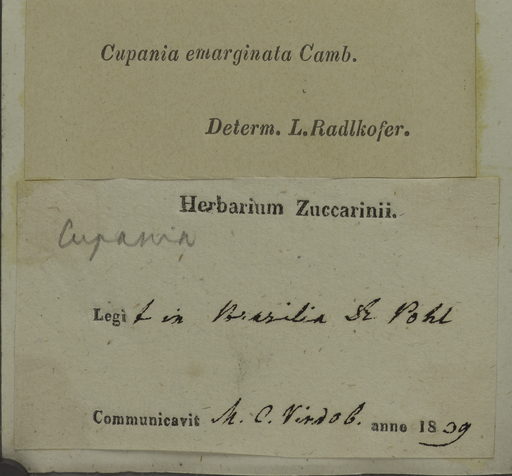 Cupania emarginata Camb.
Determ. L. Radlkofer.
Herbarium Zuccarinii.
Cupania
Legit in Brasilia Dr Pohl
Communicavit M. C. Vindob. anno 1839